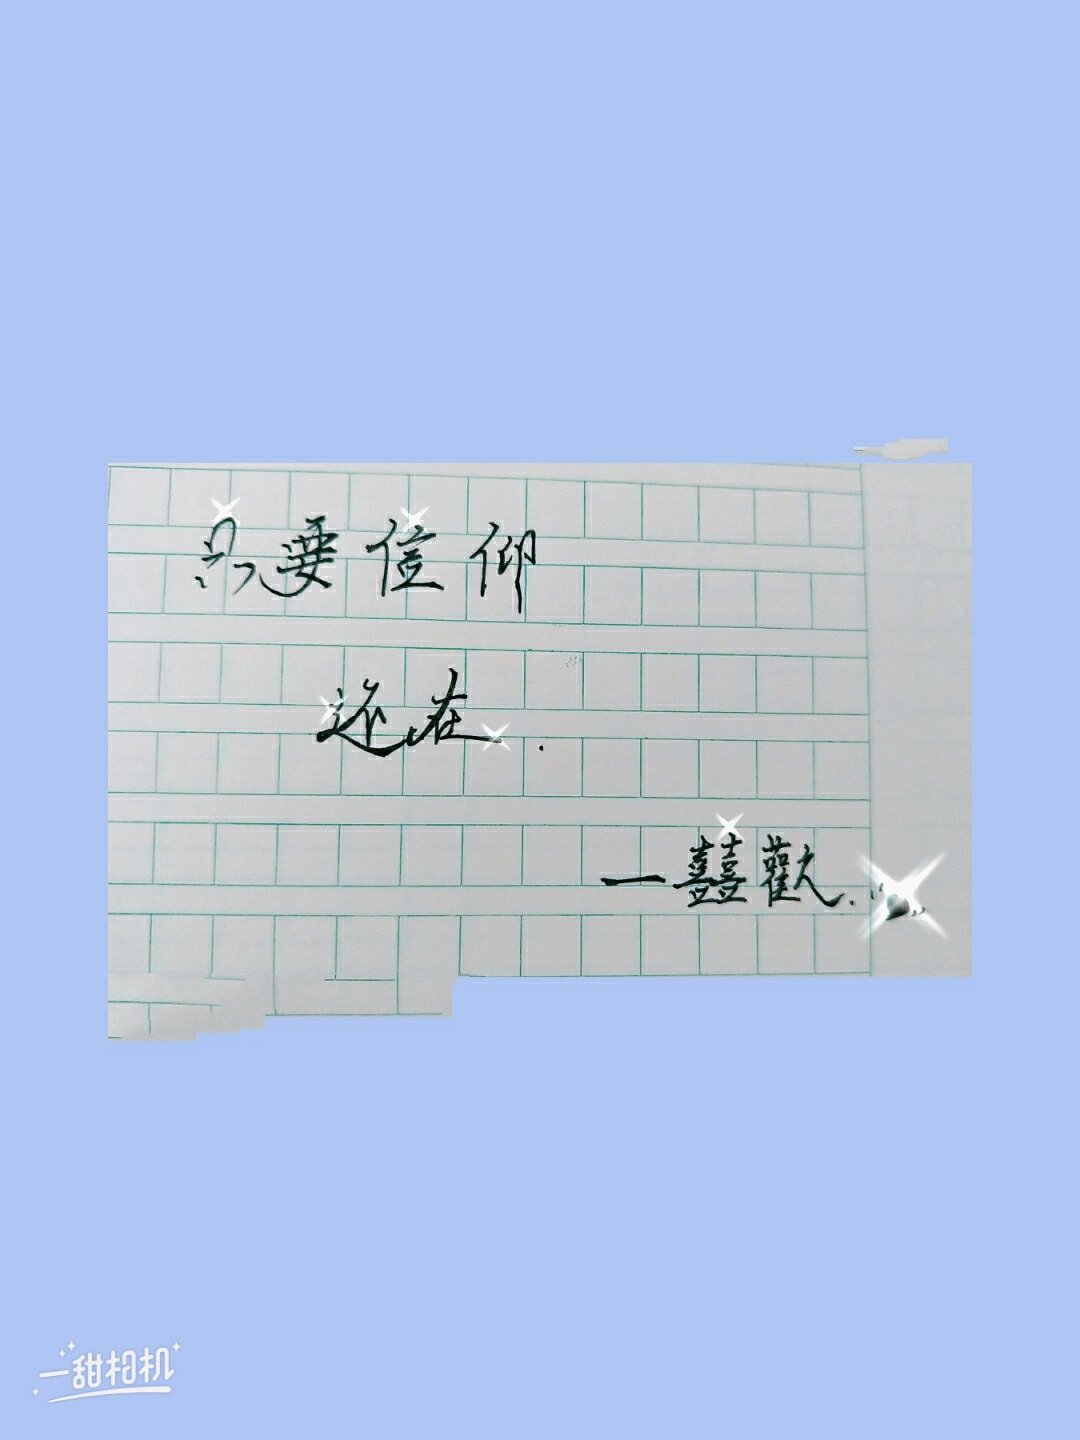 只要信仰
还在.
一囍歡.
一甜相机